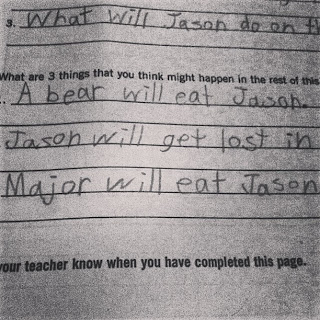 3. What Will Jason do on
What are 3 things that you think might happen in the rest of this
A bear will eat Jason.
Jason will get lost in
Major will eat Jason
your teacher know when you have completed this page.